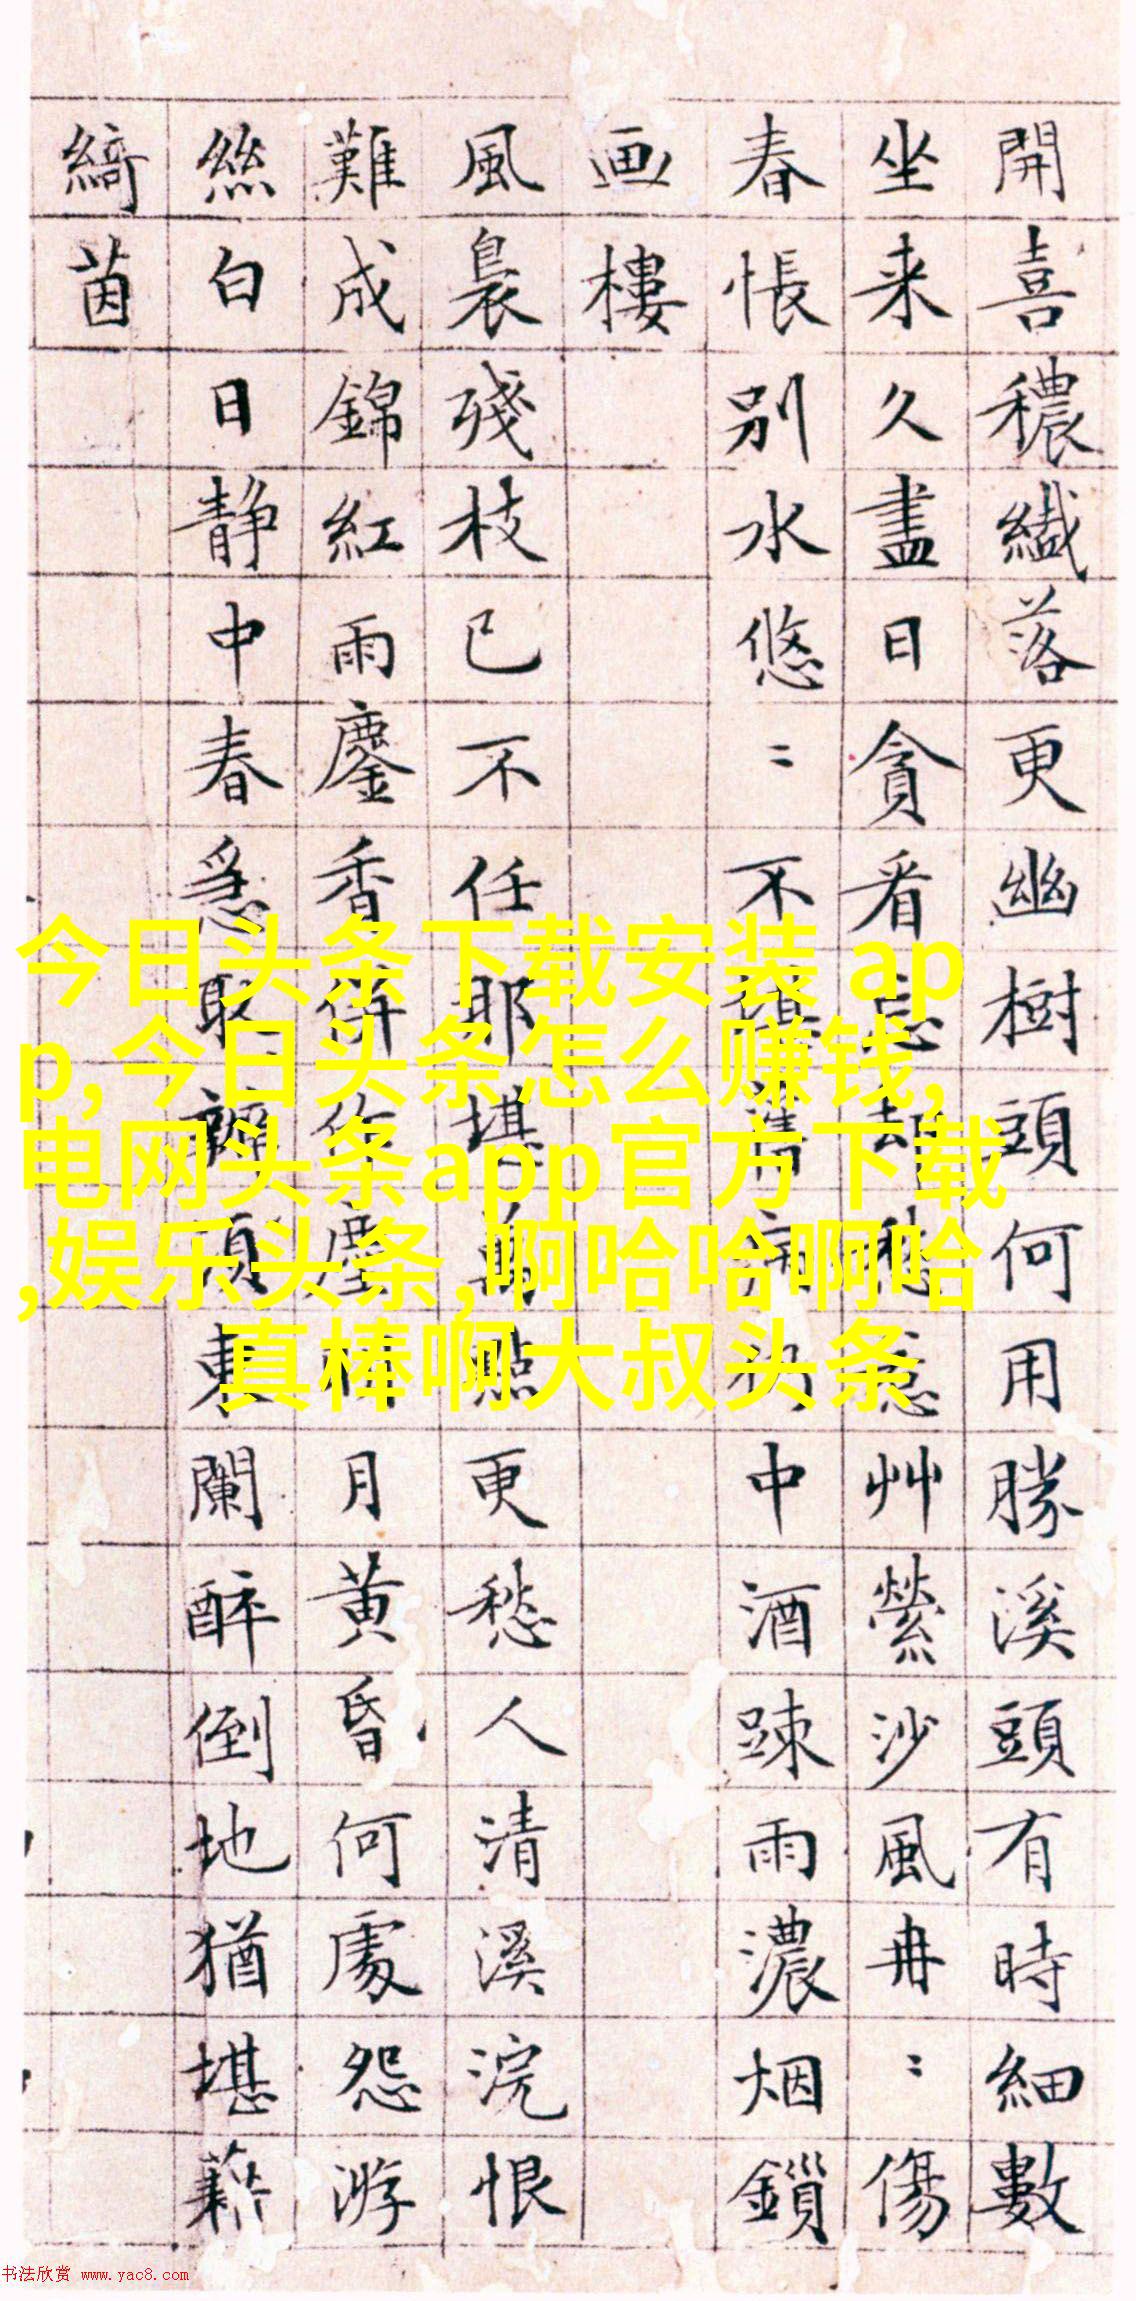 開喜穠纎落更幽樹頭何用勝溪頭有時細數
坐来久盡日貪看忘却愁意艸縈沙風冉〻傷
春悵別水悠〻不清病中酒踈雨濃烟鎖
画樓
風裊殘枝已不任那堪萬點更愁人清溪浣恨
難成錦紅雨鏖香併作塵月黄昏何處怨游
絲白日静中春急取須東闌醉倒地猶堪藉
綺茵
今日头条下载安装 ap
p,今日头条怎么赚钱,
电网头条app官方下载
,娱乐头条,啊哈哈啊哈
真棒啊大叔头条
书法欣赏 www.yac8.com